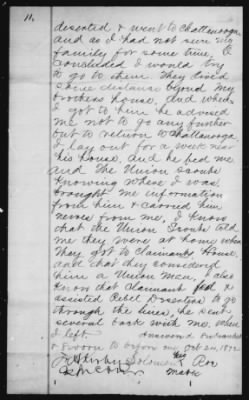 11.
deserted & went to Chattanooga
and as I had not seen my
family for some time, I
concluded I would try
to go to them. They lived
some distance beyond my
brothers house, and when
I got to him he advised
me not to go any further
but to return to Chattanooga
I lay out for a week near
his house, and he fed me
and the Union scouts
knowing where I was
brought me information
from him & carried him
news from me, I know
that the Union Scouts told
me they were at home when
they got to Claimants House,
and that they considerd
him a Union Man, I also
know that Claimant fed &
assisted Rebel Deserters to go
through the lines, he sent
several back with me, when
I left. Answered & subscribed
& Sworn to before me Oct 24, 187
Solomon his Roe
mark